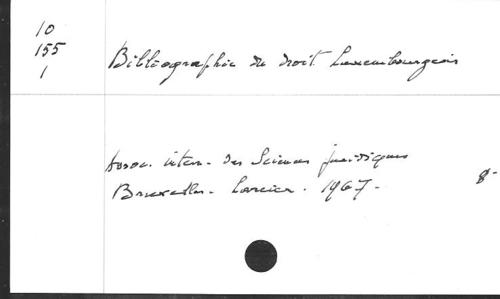 10
155
1
Bibliographie du droit Luxembourgeois
Assoc. intern. des Sciences juridiques
Bruxelles. Larcier. 1967.
8-